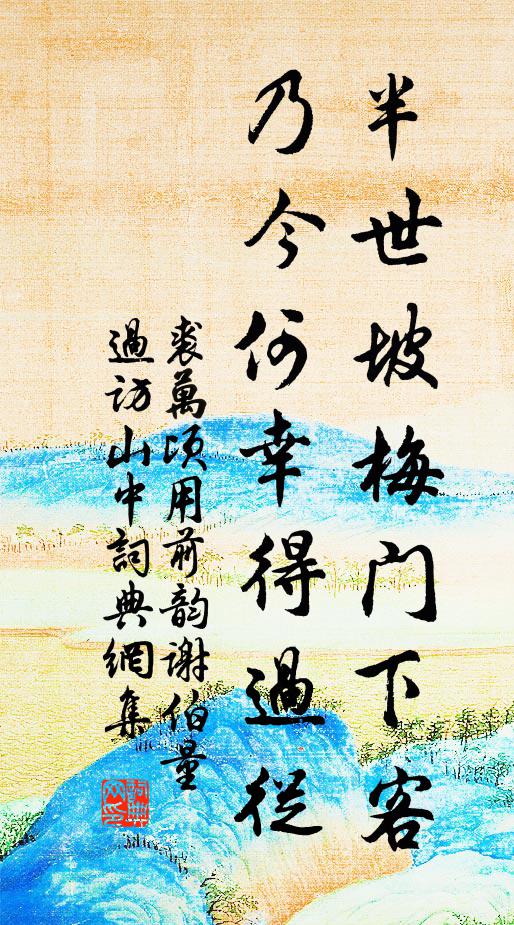 半世坡梅门下客
乃今何幸得過從
裘萬頃用前韵謝伯量
過訪山中詞典網集